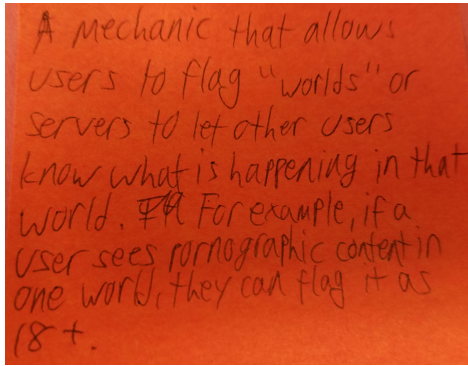 A mechanic that allows
users to flag "worlds" or
servers to let other users
know what is happening in that
world. For example, if a
user sees pornographic content in
one world, they can flag it as
18+.